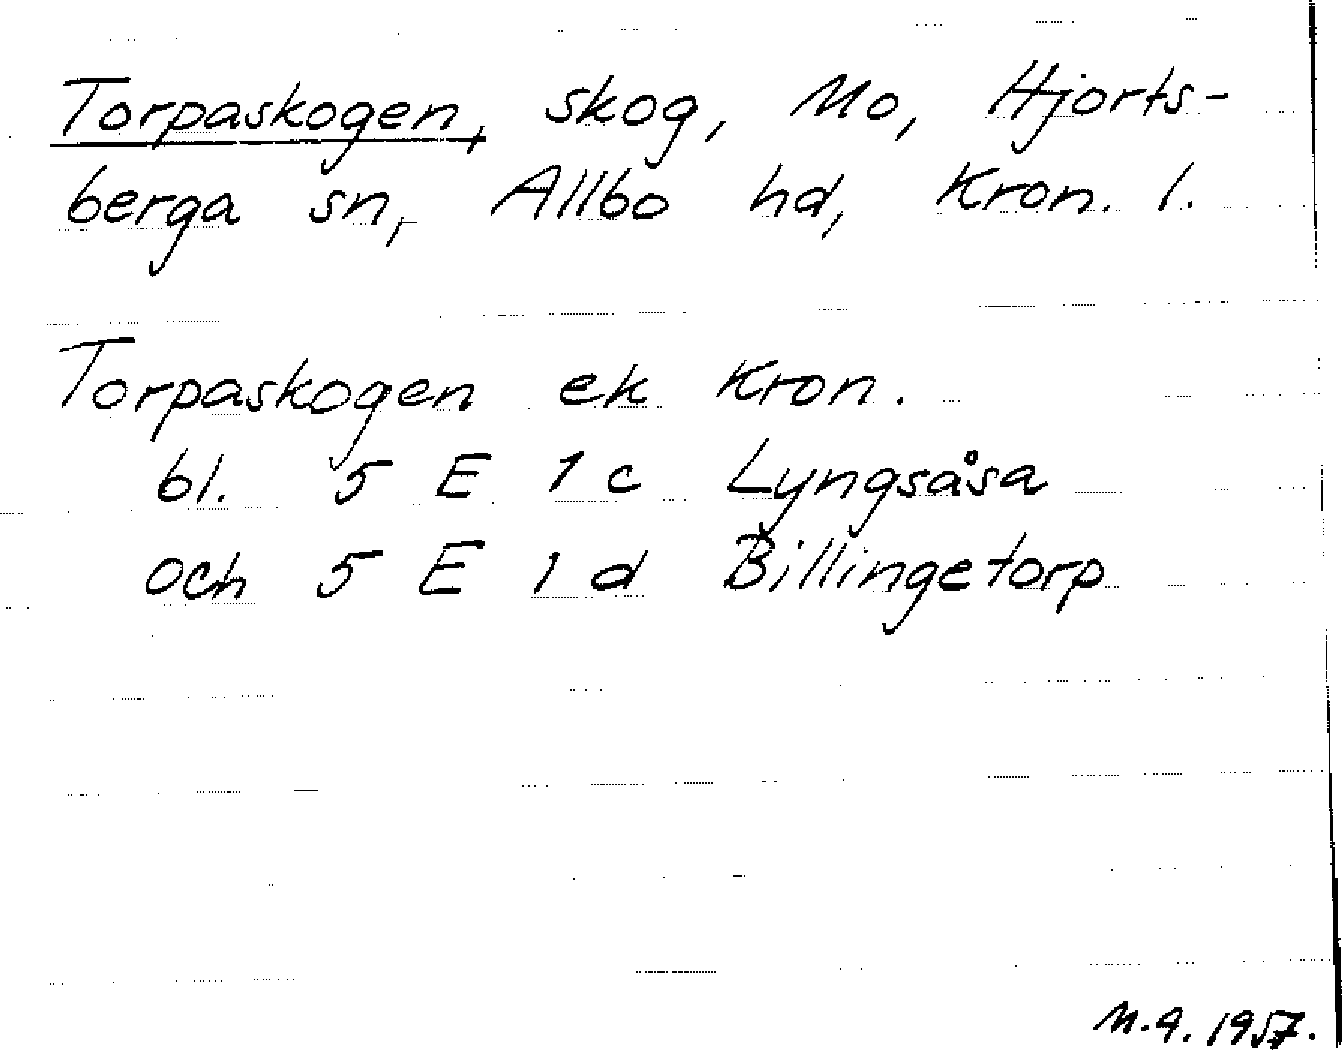 Torpaskogen, skog, Mo, Hjorts-
berga sn, Allbo hd, Kron. l.
Torpaskogen ek Kron.
bl. 5 E 1 c Lyngsåsa
och 5 E 1 d Billingetorp
M.A. 1957.